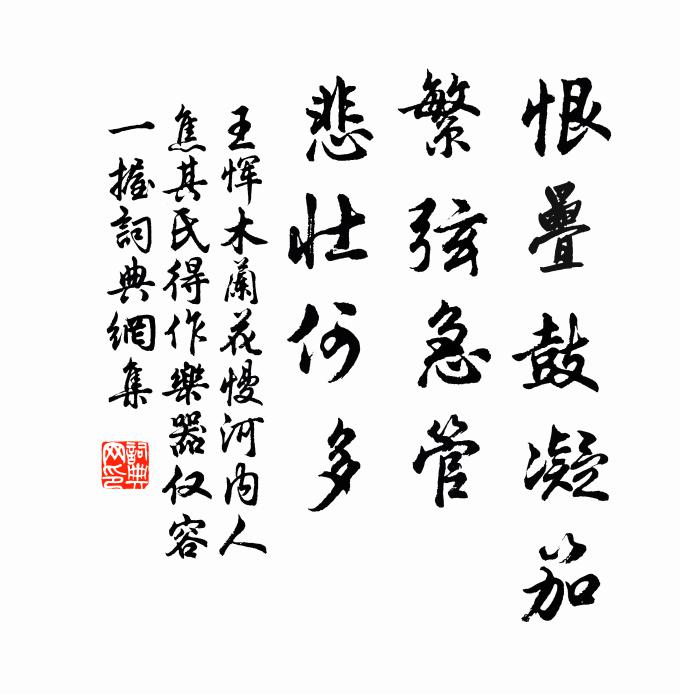 恨疊鼓凝笳
繁弦急管
悲壯何多
王惲木蘭花慢河內人
焦其氏得作樂器仅容
一握詞典網集
詞典网印